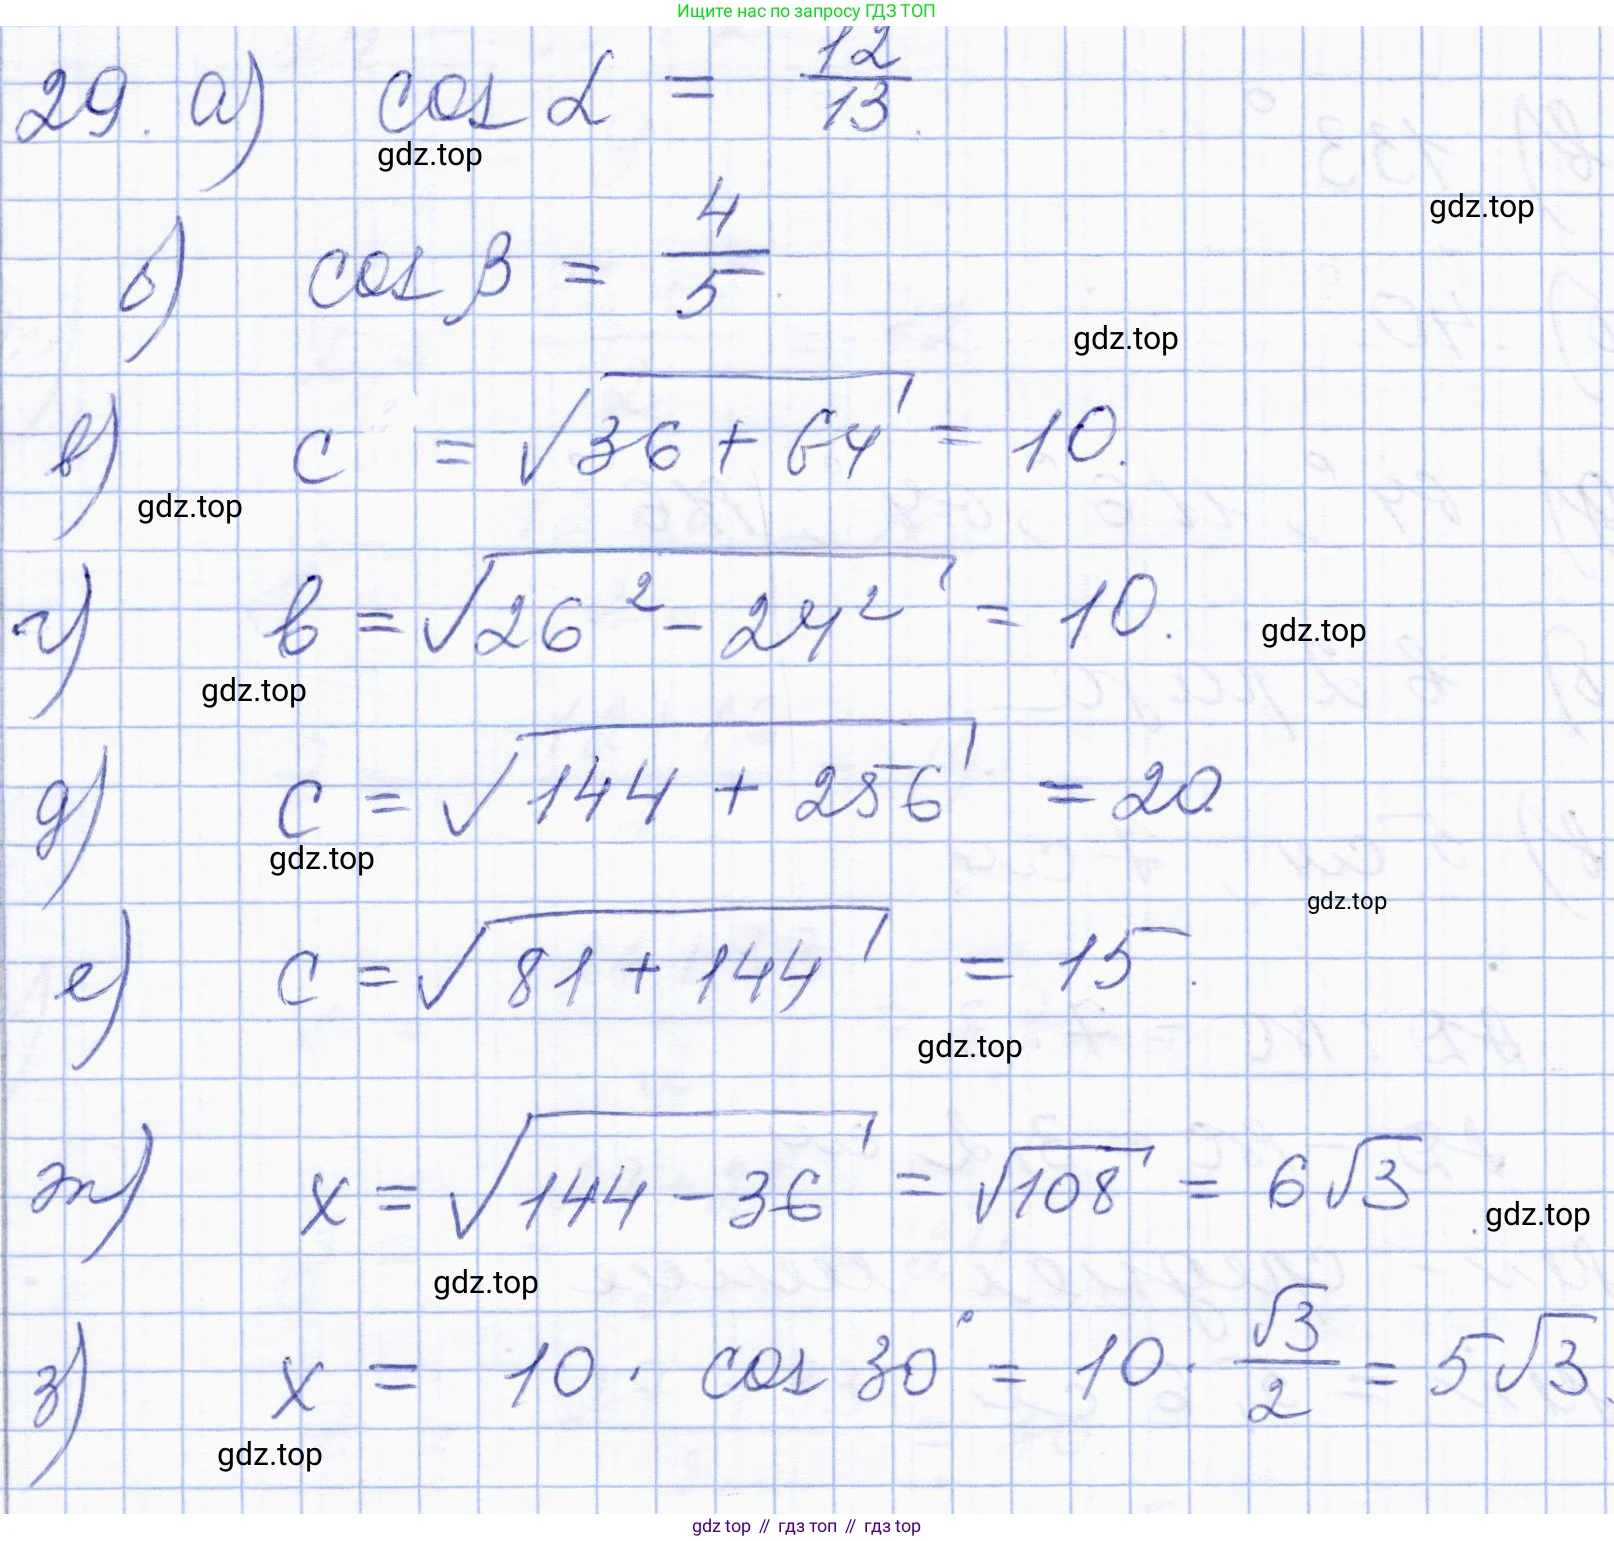 Ищите нас по запросу ГДЗ ТОП
29. а) cos α = 12/13.
gdz.top
gdz.top
б) cos β = 4/5.
gdz.top
в) c = √(36 + 64) = 10.
gdz.top
г) в = √(26² - 24²) = 10.
gdz.top
gdz.top
д) c = √(144 + 256) = 20.
gdz.top
gdz.top
е) c = √(81 + 144) = 15.
gdz.top
ж) x = √(144 - 36) = √108 = 6√3.
gdz.top
gdz.top
з) x = 10 · cos 30° = 10 · √3/2 = 5√3.
gdz.top
gdz top // гдз топ // гдз top